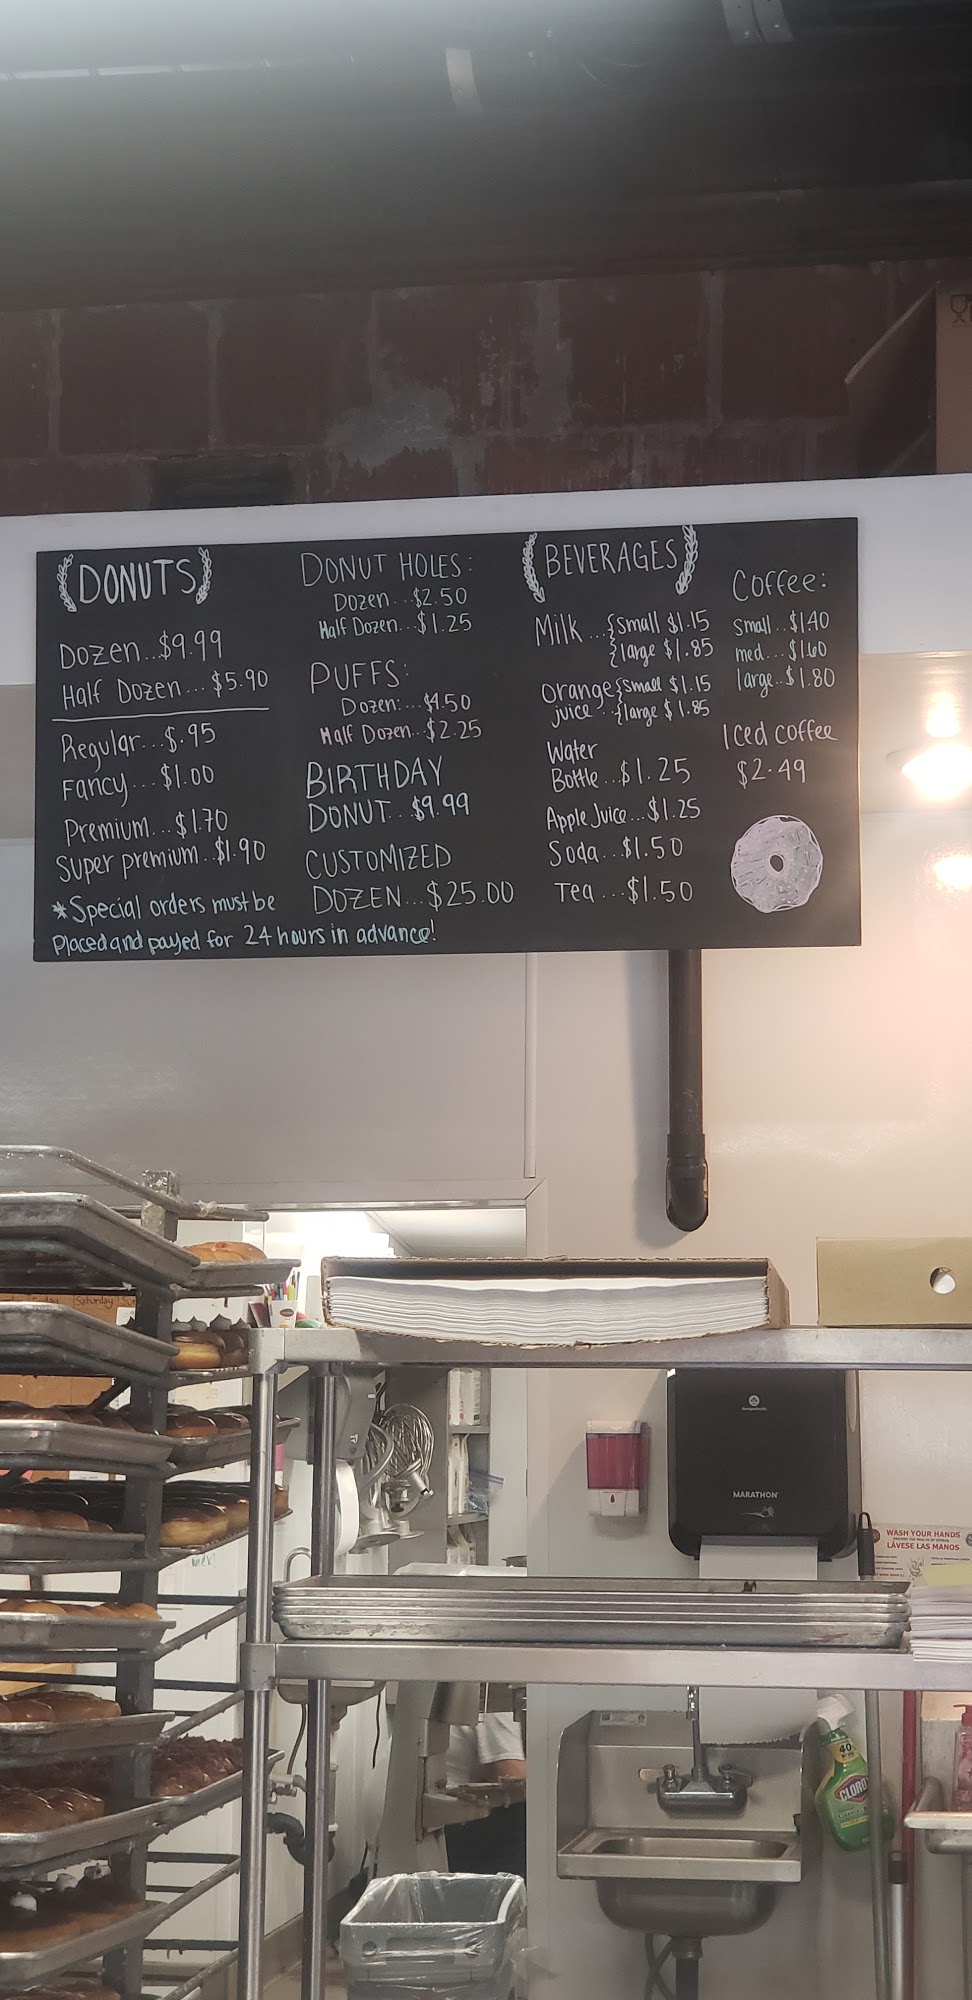 DONUTS
Dozen...$9.99
Half Dozen...$5.90
Regular...$.95
Fancy...$1.00
Premium...$1.70
Super premium..$1.90
*Special orders must be
placed and payed for 24 hours in advance!
DONUT HOLES:
Dozen...$2.50
Half Dozen...$1.25
PUFFS:
Dozen:...$4.50
Half Dozen...$2.25
BIRTHDAY
DONUT...$9.99
CUSTOMIZED
DOZEN...$25.00
BEVERAGES
Milk...{small $1.15
{large $1.85
Orange {small $1.15
juice...{large $1.85
Water
Bottle...$1.25
Apple Juice...$1.25
Soda...$1.50
Tea....$1.50
Coffee:
small...$1.40
med....$1.60
large..$1.80
Iced coffee
$2.49
Saturday
MARATHON
WASH YOUR HANDS
LÁVESE LAS MANOS
40
CLORO